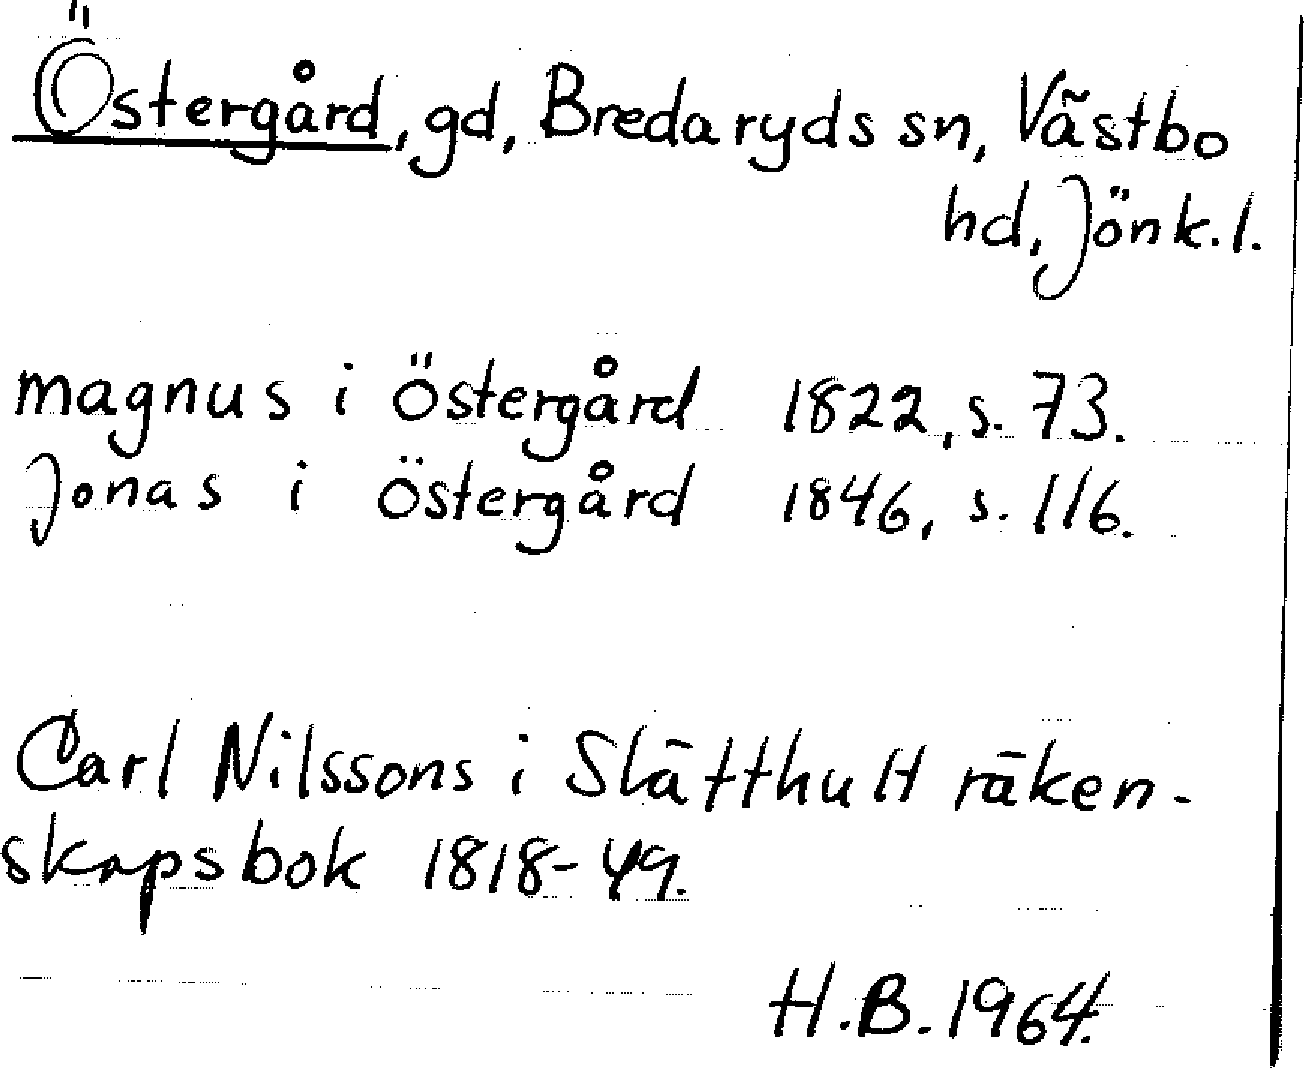 Östergård, gd, Bredaryds sn, Västbo
hd, Jönk. l.
magnus i Östergård 1822, s. 73.
Jonas i Östergård 1846, s. 116.
Carl Nilssons i Slätthult räken-
skapsbok 1818-49.
H.B. 1964.